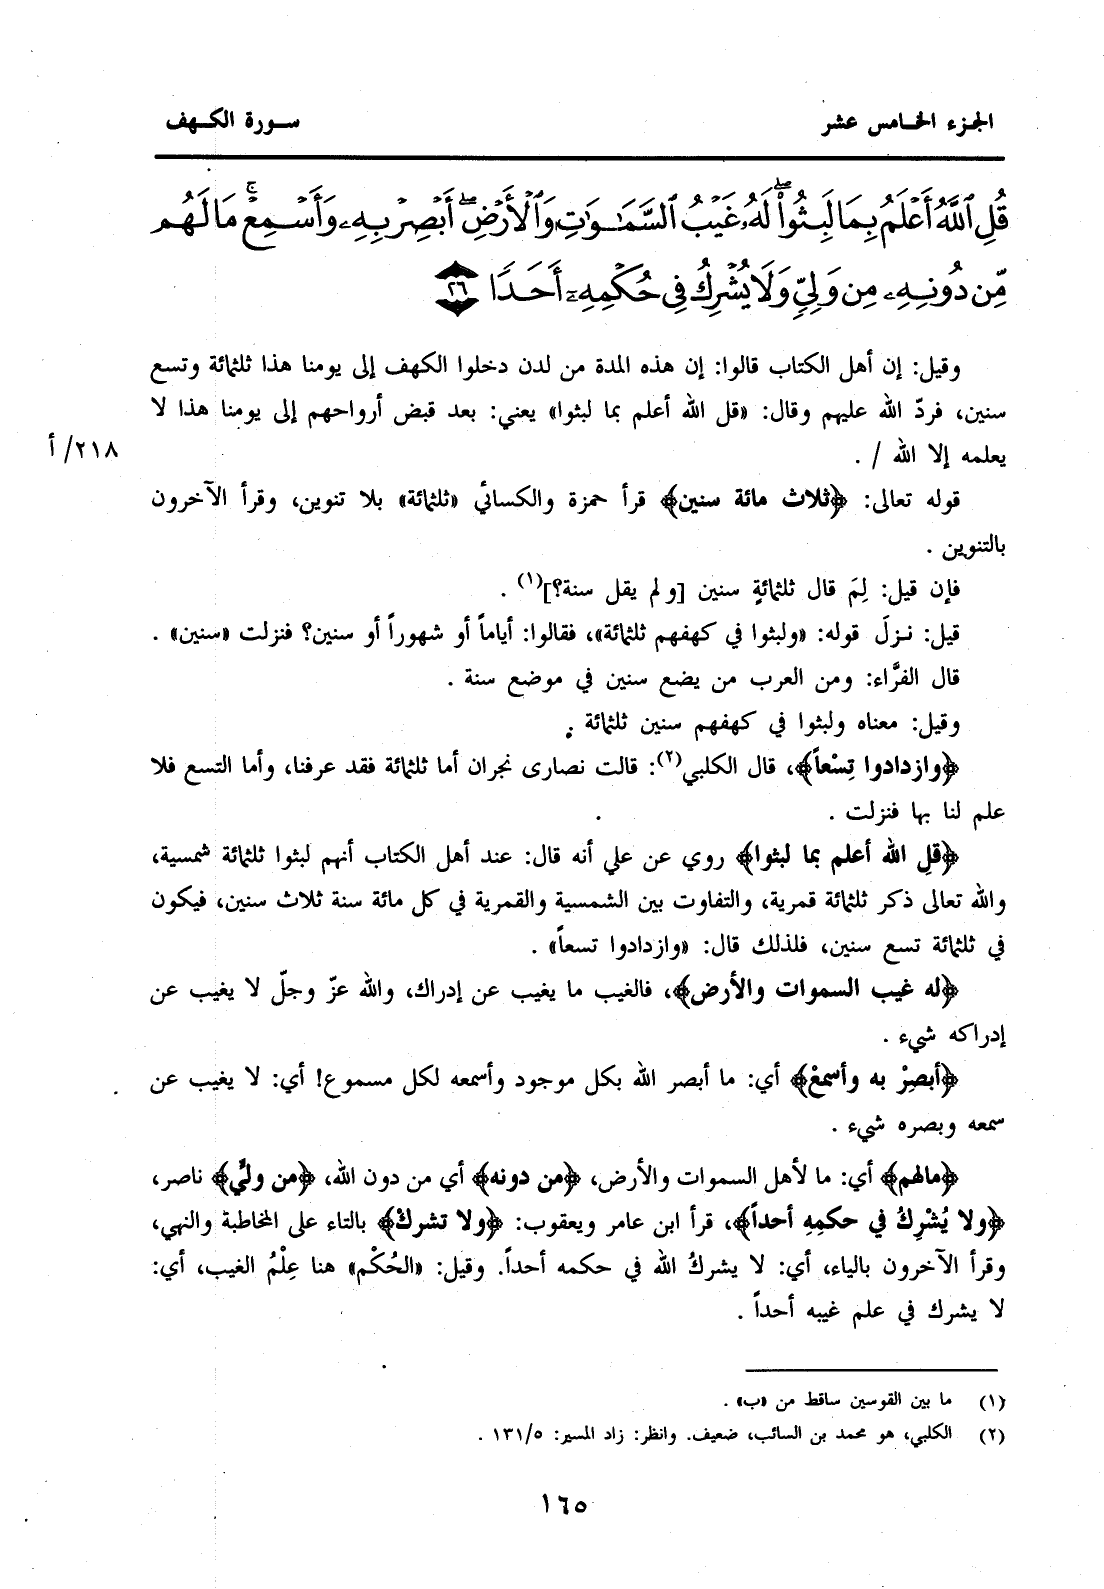 الجزء الخامس عشر
سورة الكهف
قُلِ ٱللَّهُ أَعْلَمُ بِمَا لَبِثُوا۟ ۖ لَهُۥ غَيْبُ ٱلسَّمَٰوَٰتِ وَٱلْأَرْضِ ۖ أَبْصِرْ بِهِۦ وَأَسْمِعْ ۚ مَا لَهُم
مِّن دُونِهِۦ مِن وَلِيٍّ وَلَا يُشْرِكُ فِي حُكْمِهِۦٓ أَحَدًا ٢٦
وقيل: إن أهل الكتاب قالوا: إن هذه المدة من لدن دخلوا الكهف إلى يومنا هذا ثلثمائة وتسع
سنين، فردّ الله عليهم وقال: «قل الله أعلم بما لبثوا» يعني: بعد قبض أرواحهم إلى يومنا هذا لا
يعلمه إلا الله / .
٢١٨/ أ
قوله تعالى: ﴿ثلاث مائة سنين﴾ قرأ حمزة والكسائي «ثلثمائة» بلا تنوين، وقرأ الآخرون
بالتنوين .
فإن قيل: لِمَ قال ثلثمائةٍ سنين [ولم يقل سنة؟](١) .
قيل: نزلَ قوله: «ولبثوا في كهفهم ثلثمائة»، فقالوا: أياماً أو شهوراً أو سنين؟ فنزلت «سنين» .
قال الفرَّاء: ومن العرب من يضع سنين في موضع سنة .
وقيل: معناه ولبثوا في كهفهم سنين ثلثمائة .
﴿وازدادوا تِسْعاً﴾، قال الكلبي(٢): قالت نصارى نجران أما ثلثمائة فقد عرفنا، وأما التسع فلا
علم لنا بها فنزلت .
﴿قلِ الله أعلم بما لبثوا﴾ روي عن علي أنه قال: عند أهل الكتاب أنهم لبثوا ثلثمائة شمسية،
والله تعالى ذكر ثلثمائة قمرية، والتفاوت بين الشمسية والقمرية في كل مائة سنة ثلاث سنين، فيكون
في ثلثمائة تسع سنين، فلذلك قال: «وازدادوا تسعاً» .
﴿له غيب السموات والأرض﴾، فالغيب ما يغيب عن إدراك، والله عزّ وجلّ لا يغيب عن
إدراكه شيء .
﴿أبصِرْ به وأسمعْ﴾ أي: ما أبصر الله بكل موجود وأسمعه لكل مسموع! أي: لا يغيب عن
سمعه وبصره شيء .
﴿مالهم﴾ أي: ما لأهل السموات والأرض، ﴿من دونه﴾ أي من دون الله، ﴿من وليٍّ﴾ ناصر،
﴿ولا يُشْرِكُ في حكمِهِ أحداً﴾، قرأ ابن عامر ويعقوب: ﴿ولا تشركْ﴾ بالتاء على المخاطبة والنهي،
وقرأ الآخرون بالياء، أي: لا يشركُ الله في حكمه أحداً. وقيل: «الحُكْم» هنا عِلْمُ الغيب، أي:
لا يشرك في علم غيبه أحداً .
(١) ما بين القوسين ساقط من «ب» .
(٢) الكلبي، هو محمد بن السائب، ضعيف. وانظر: زاد المسير: ١٣١/٥ .
١٦٥